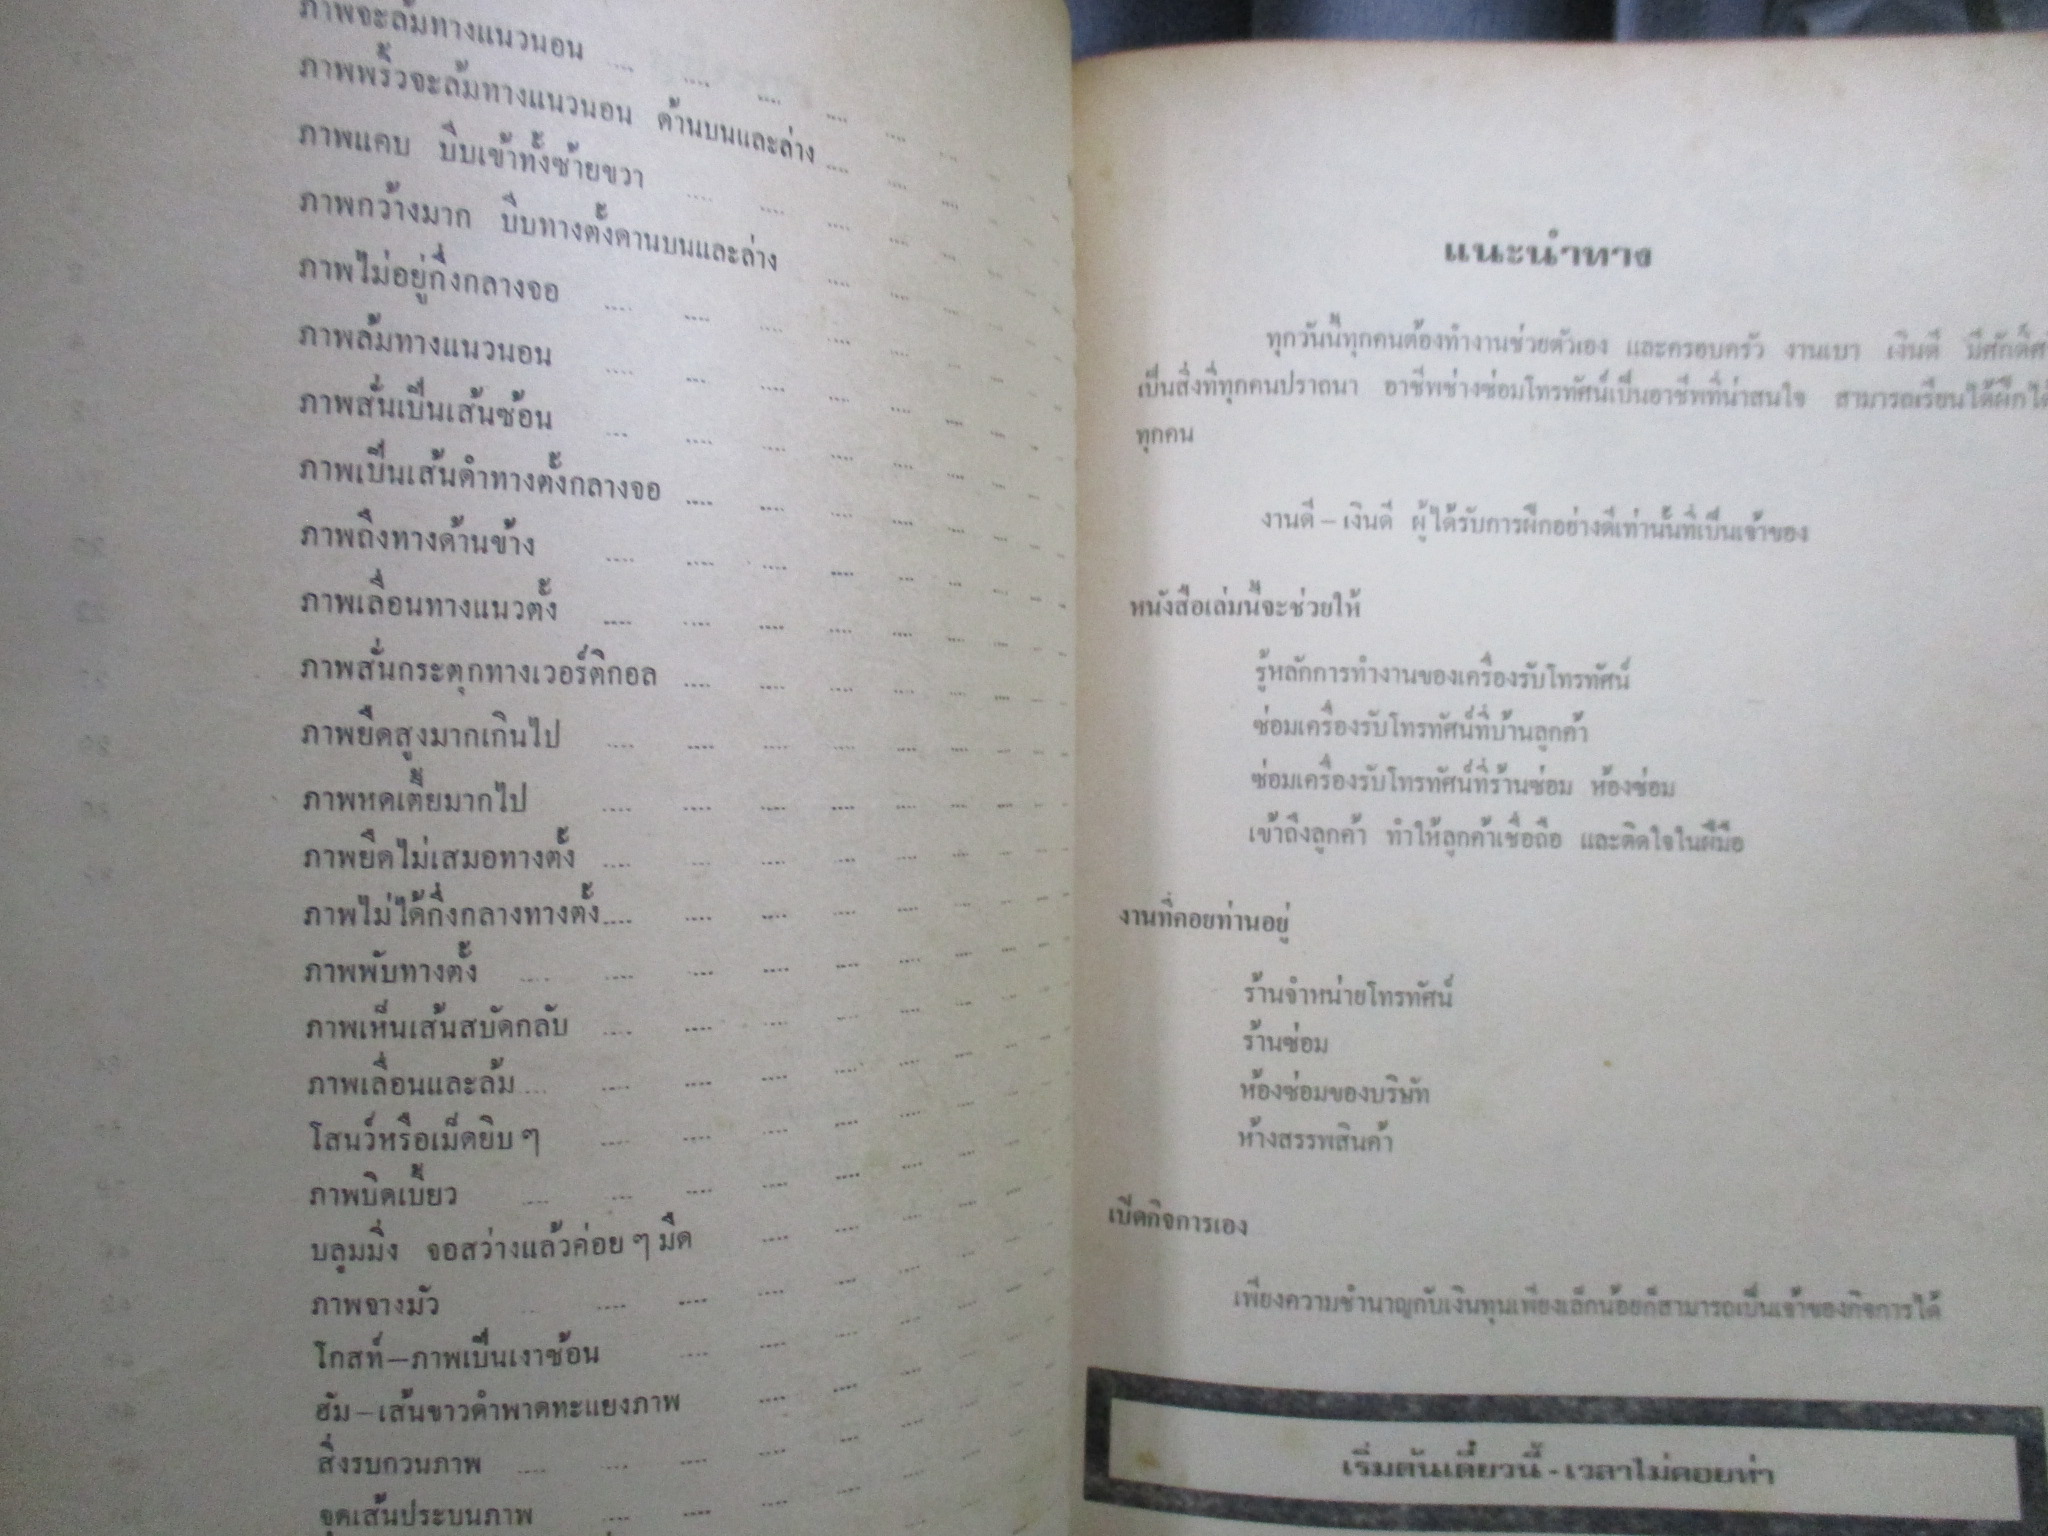 ภาพจะล้มทางแนวนอน .... .... .... .... ....
ภาพพริ้วจะล้มทางแนวนอน ด้านบนและล่าง .... ....
ภาพแคบ บีบเข้าทั้งซ้ายขวา .... .... .... ....
ภาพกว้างมาก บีบทางตั้งด้านบนและล่าง .... ....
ภาพไม่อยู่กึ่งกลางจอ .... .... .... .... ....
ภาพล้มทางแนวนอน .... .... .... .... ....
ภาพสั่นเป็นเส้นซ้อน .... .... .... .... ....
ภาพเป็นเส้นดำทางตั้งกลางจอ .... .... .... ....
ภาพถึงทางด้านข้าง .... .... .... .... ....
ภาพเลื่อนทางแนวตั้ง .... .... .... .... ....
ภาพสั่นกระตุกทางเวอร์ติกอล .... .... .... ....
ภาพยืดสูงมากเกินไป .... .... .... .... ....
ภาพหดเตี้ยมากไป .... .... .... .... ....
ภาพยืดไม่เสมอทางตั้ง .... .... .... .... ....
ภาพไม่ได้กึ่งกลางทางตั้ง.... .... .... .... ....
ภาพพับทางตั้ง .... .... .... .... .... ....
ภาพเห็นเส้นสบัดกลับ .... .... .... .... ....
ภาพเลื่อนและล้ม.... .... .... .... .... ....
โสนว์หรือเม็ดยิบ ๆ .... .... .... .... ....
ภาพบิดเบี้ยว .... .... .... .... .... ....
บลุมมิ่ง จอสว่างแล้วค่อย ๆ มืด .... .... ....
ภาพจางมัว .... .... .... .... .... ....
โกสท์—ภาพเป็นเงาซ้อน .... .... .... ....
ฮัม—เส้นขาวดำพาดทะแยงภาพ .... .... ....
สิ่งรบกวนภาพ .... .... .... .... .... ....
จุดเส้นประบนภาพ .... .... .... .... ....
แนะนำทาง
ทุกวันนี้ทุกคนต้องทำงานช่วยตัวเอง และครอบครัว งานเบา เงินดี
เป็นสิ่งที่ทุกคนปราถนา อาชีพช่างซ่อมโทรทัศน์เป็นอาชีพที่น่าสนใจ สามารถเรียนได้ฝึกได้
ทุกคน
งานดี – เงินดี ผู้ได้รับการฝึกอย่างดีเท่านั้นที่เป็นเจ้าของ
หนังสือเล่มนี้จะช่วยให้
รู้หลักการทำงานของเครื่องรับโทรทัศน์
ซ่อมเครื่องรับโทรทัศน์ที่บ้านลูกค้า
ซ่อมเครื่องรับโทรทัศน์ที่ร้านซ่อม ห้องซ่อม
เข้าถึงลูกค้า ทำให้ลูกค้าเชื่อถือ และติดใจในฝีมือ
งานที่คอยท่านอยู่
ร้านจำหน่ายโทรทัศน์
ร้านซ่อม
ห้องซ่อมของบริษัท
ห้างสรรพสินค้า
เปิดกิจการเอง
เพียงความชำนาญกับเงินทุนเพียงเล็กน้อยก็สามารถเป็นเจ้าของกิจการได้
เริ่มต้นเดี๋ยวนี้ - เวลาไม่คอยท่า